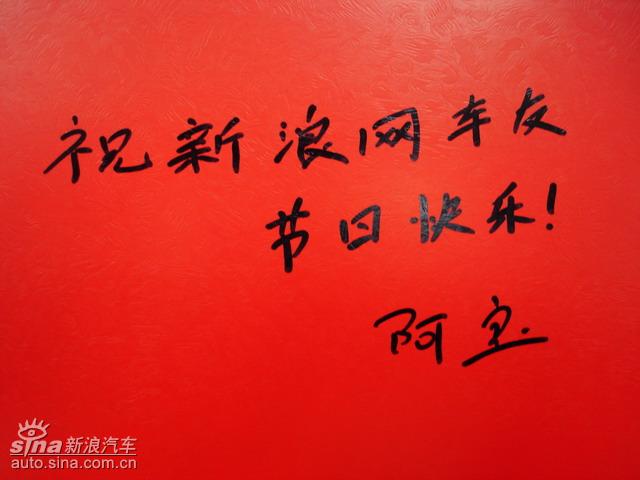 祝新浪网车友
节日快乐!
阿宝
sina新浪汽车
auto.sina.com.cn